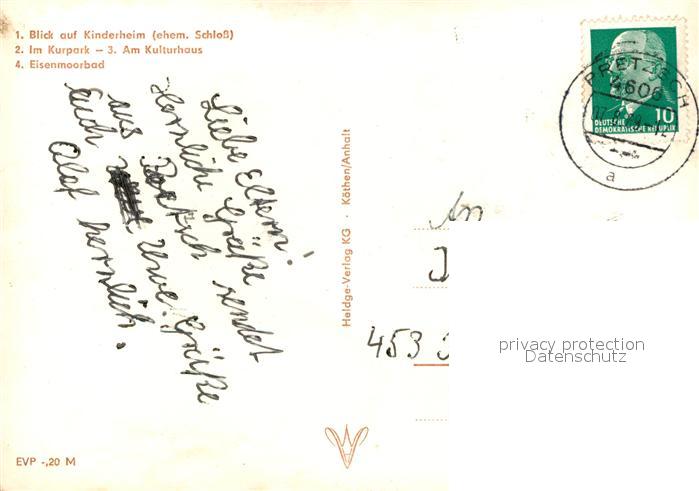 1. Blick auf Kinderheim (ehem. Schloß)
2. Im Kurpark – 3. Am Kulturhaus
4. Eisenmoorbad
Liebe Eltern!
Herzliche Grüße
aus Pretzsch sendet
Euch Uwe. Grüße
Olaf herzlich.
Heldge-Verlag KG · Köthen/Anhalt
EVP -,20 M
PRETZSCH
4606
a
10
DEUTSCHE
DEMOKRATISCHE REPUBLIK
An
453
privacy protection
Datenschutz